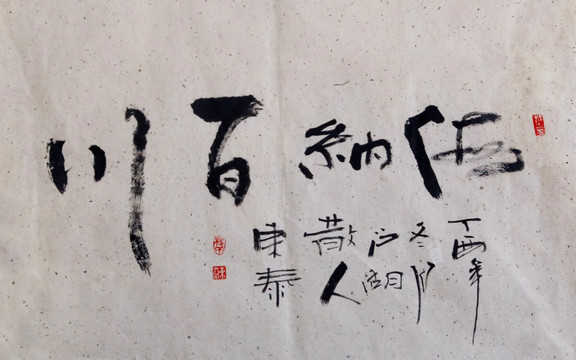 海納百川
丁酉年
冬月
江湖
散人
東泰